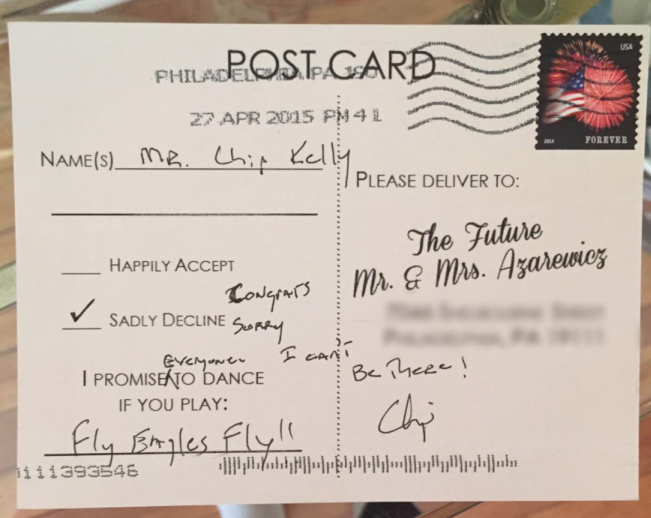 POST CARD
PHILADELPHIA PA 190
27 APR 2015 PM 4 L
USA
2014 FOREVER
NAME(S) MR. Chip Kelly
PLEASE DELIVER TO:
The Future
Mr. & Mrs. Azarewicz
PHILADELPHIA, PA 19111
HAPPILY ACCEPT
✓ SADLY DECLINE
CONGRATS
SORRY
I CAN'T
BE THERE!
Chip
EVERYONE
I PROMISE ^ TO DANCE
IF YOU PLAY:
Fly EAgles Fly!!
111393546